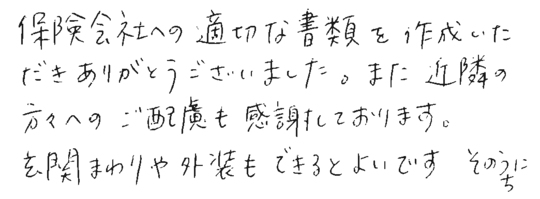 保険会社への適切な書類を作成いた
だきありがとうございました。また近隣の
方々へのご配慮も感謝しております。
玄関まわりや外装もできるとよいです そのうち に